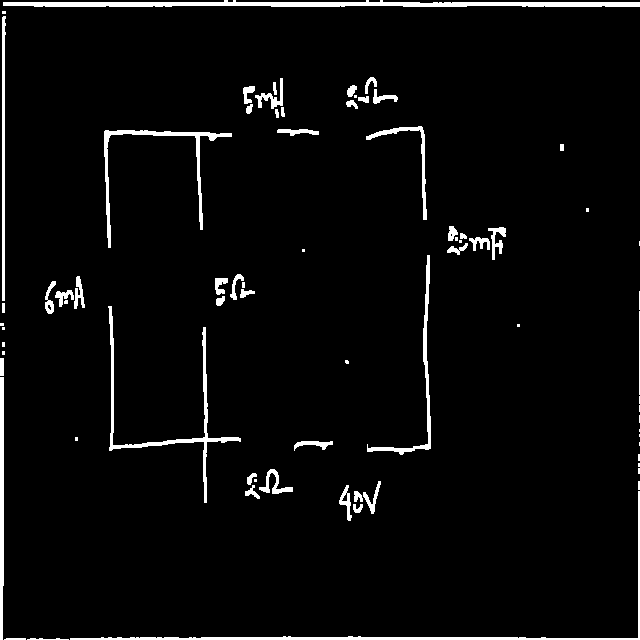 5mH 2Ω
25mF
6mA 5Ω
2Ω 40V